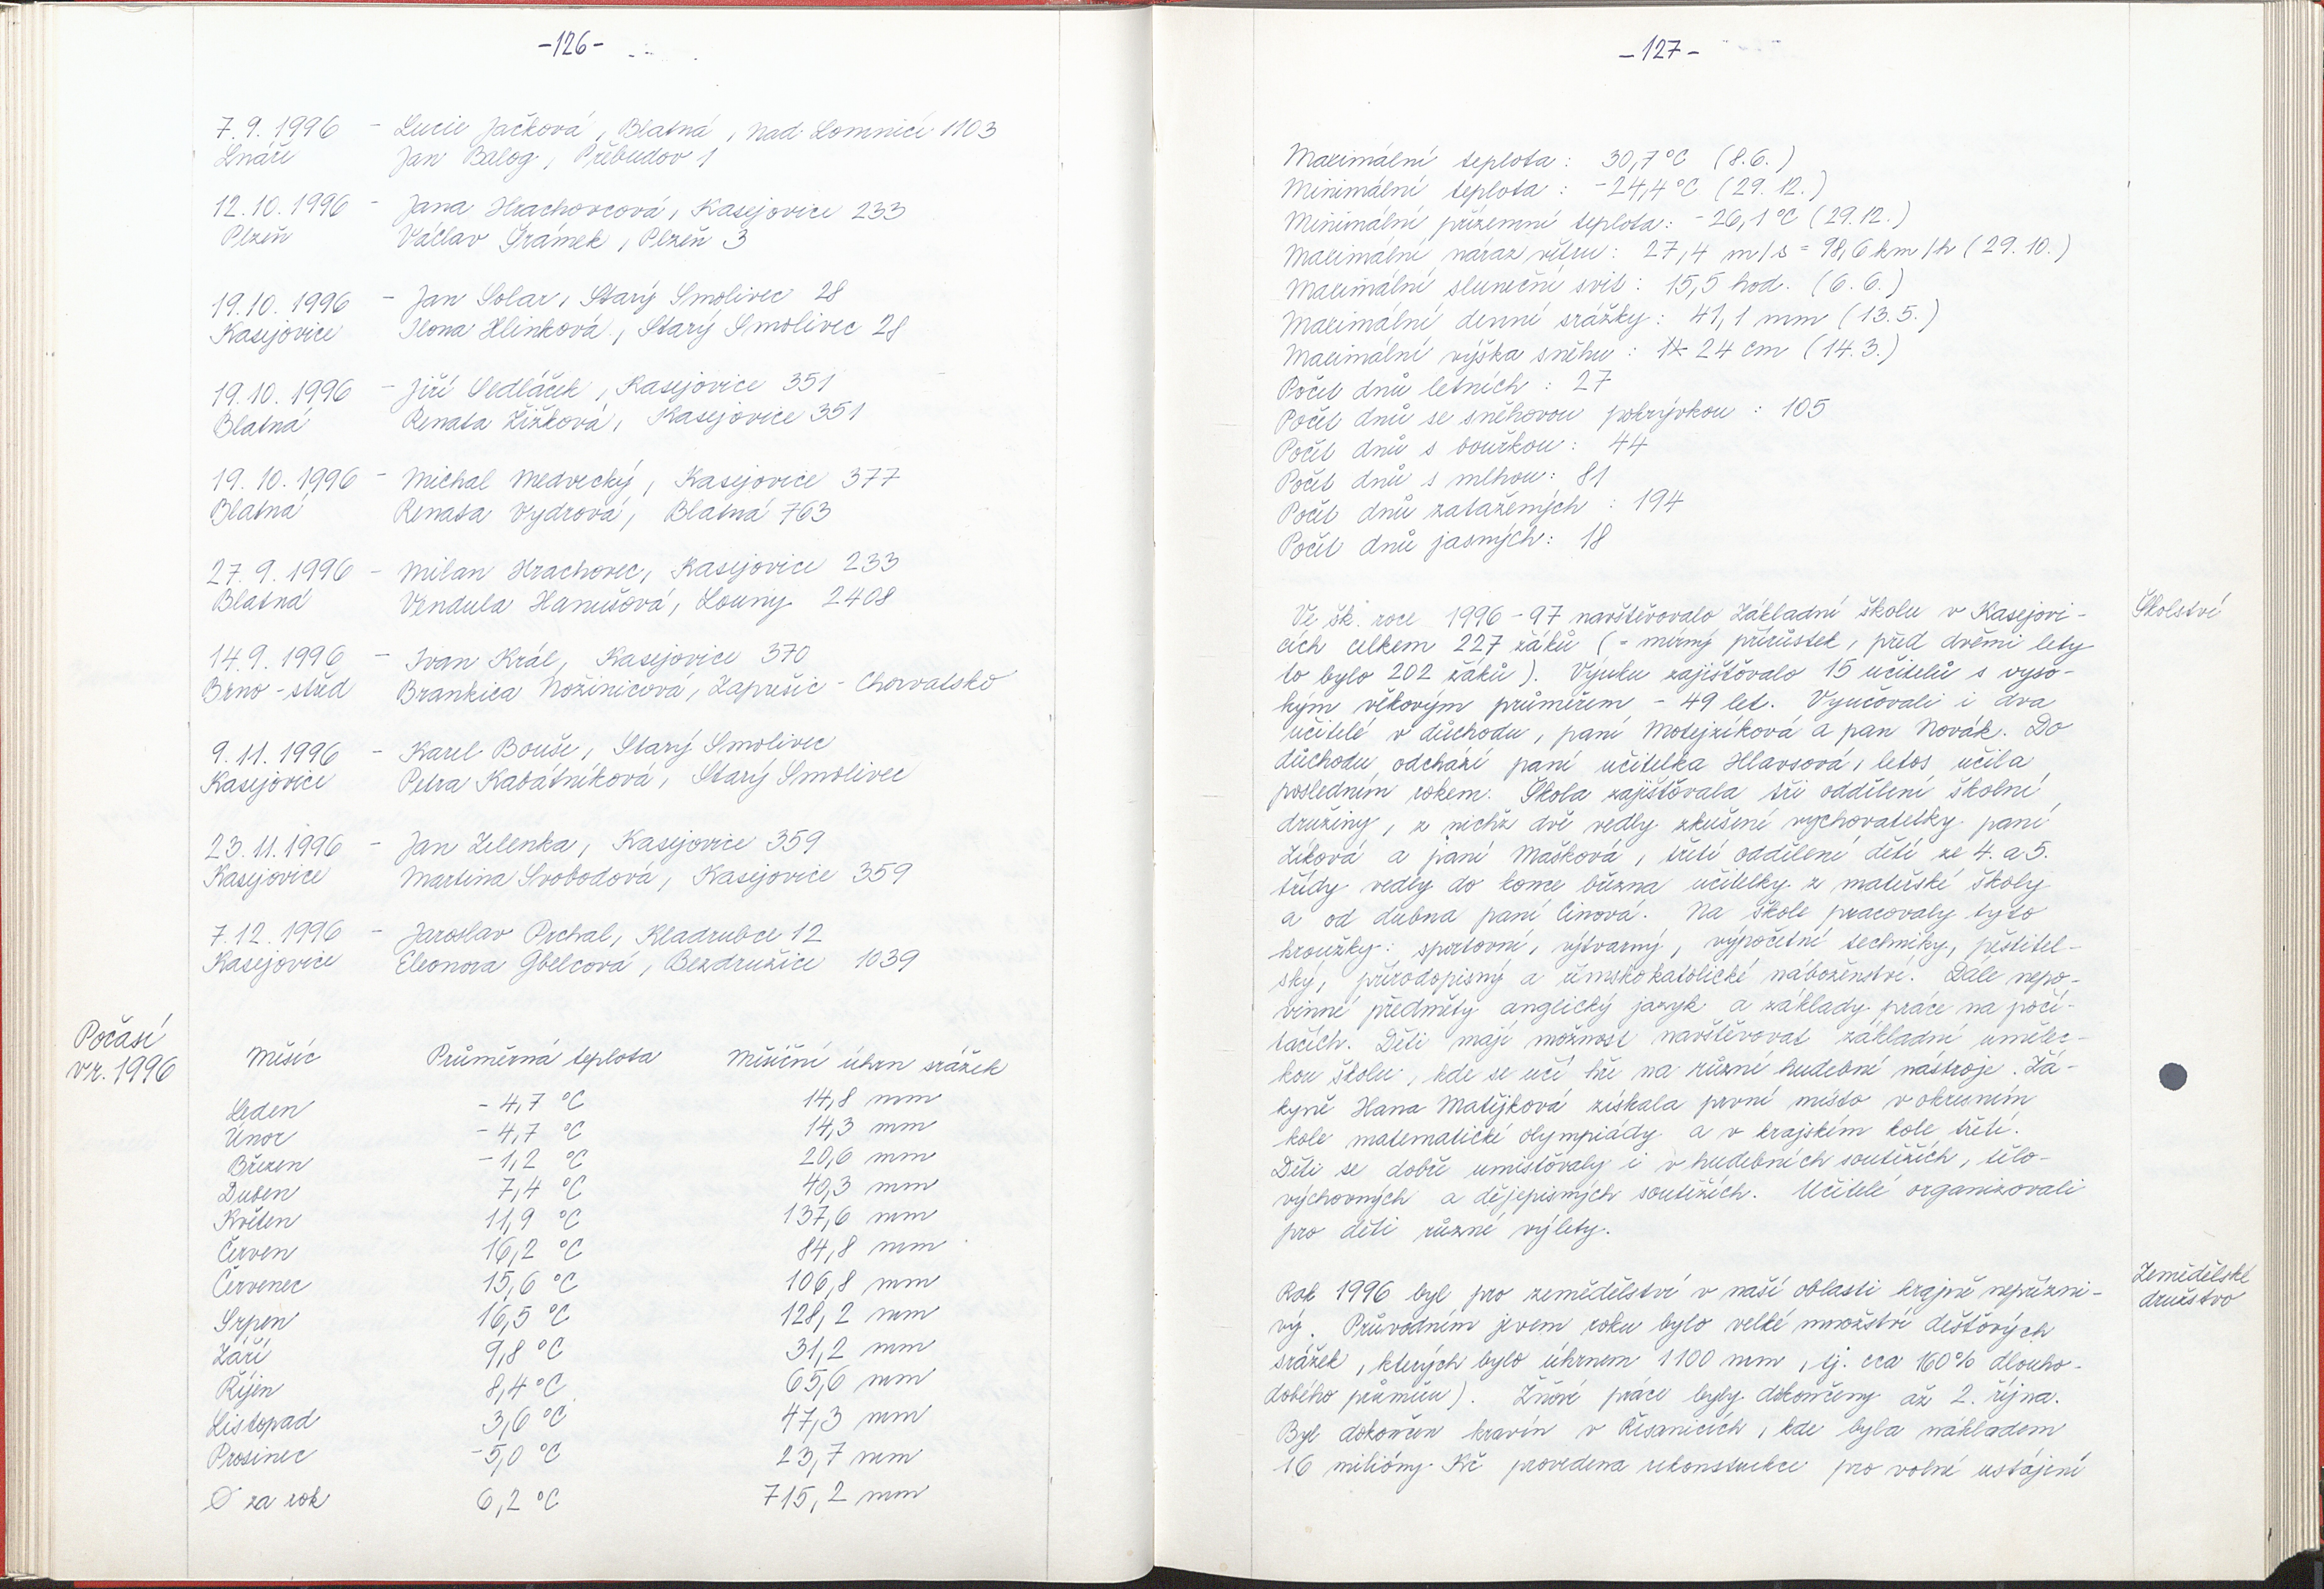 -126-
7.9.1996 - Lucie Jačková, Blatná, Nad Lomnicí 1103
Lnáře Jan Balog, Přebudov 1
12.10.1996 - Jana Hrachovcová, Kasejovice 233
Plzeň Václav Šrámek, Plzeň 3
19.10.1996 - Jan Solar, Starý Smolivec 28
Kasejovice Ilona Hlinková, Starý Smolivec 28
19.10.1996 - Jiří Sedláček, Kasejovice 351
Blatná Renata Žižková, Kasejovice 351
19.10.1996 - Michal Medvecký, Kasejovice 377
Blatná Renata Vydrová, Blatná 763
27.9.1996 - Milan Hrachovec, Kasejovice 233
Blatná Vendula Hanušová, Louny 2408
14.9.1996 - Ivan Král, Kasejovice 370
Brno-střed Brankica Nožinicová, Zaprešic - Chorvatsko
9.11.1996 - Karel Bouše, Starý Smolivec
Kasejovice Petra Kabátníková, Starý Smolivec
23.11.1996 - Jan Zelenka, Kasejovice 359
Kasejovice Martina Svobodová, Kasejovice 359
7.12.1996 - Jaroslav Prchal, Kladrubce 12
Kasejovice Eleonora Gbelcová, Bezdružice 1039
Počasí
v r. 1996
Měsíc Průměrná teplota Měsíční úhrn srážek
Leden -4,7 °C 14,8 mm
Únor -4,7 °C 14,3 mm
Březen -1,2 °C 20,6 mm
Duben 7,4 °C 40,3 mm
Květen 11,9 °C 137,6 mm
Červen 16,2 °C 84,8 mm
Červenec 15,6 °C 106,8 mm
Srpen 16,5 °C 128,2 mm
Září 9,8 °C 31,2 mm
Říjen 8,4 °C 65,6 mm
Listopad 3,6 °C 47,3 mm
Prosinec -5,0 °C 23,7 mm
Ø za rok 6,2 °C 715,2 mm
-127-
Maximální teplota: 30,7 °C (8.6.)
Minimální teplota: -24,4 °C (29.12.)
Minimální přízemní teplota: -26,1 °C (29.12.)
Maximální náraz větru: 27,4 m/s = 98,6 km/h (29.10.)
Maximální sluneční svit: 15,5 hod. (6.6.)
Maximální denní srážky: 41,1 mm (13.5.)
Maximální výška sněhu: 24 cm (14.3.)
Počet dnů letních: 27
Počet dnů se sněhovou pokrývkou: 105
Počet dnů s bouřkou: 44
Počet dnů s mlhou: 81
Počet dnů zatažených: 194
Počet dnů jasných: 18
Školství
Ve šk. roce 1996-97 navštěvovalo Základní školu v Kasejovi-
cích celkem 227 žáků (= mírný přírůstek, před dvěmi lety
to bylo 202 žáků). Výuku zajišťovalo 15 učitelů s vyso-
kým věkovým průměrem - 49 let. Vyučovali i dva
učitelé v důchodu, paní Motejzíková a pan Novák. Do
důchodu odchází paní učitelka Hlavsová, letos učila
posledním rokem. Škola zajišťovala tři oddělení školní
družiny, z nichž dvě vedly zkušené vychovatelky paní
Zíková a paní Mašková, třetí oddělení dětí ze 4. a 5.
třídy vedly do konce března učitelky z mateřské školy
a od dubna paní Cinová. Na škole pracovaly tyto
kroužky: sportovní, výtvarný, výpočetní techniky, pěstitel-
ský, přírodopisný a římskokatolické náboženství. Dále nepo-
vinné předměty anglický jazyk a základy práce na počí-
tačích. Děti mají možnost navštěvovat základní umělec-
kou školu, kde se učí hře na různé hudební nástroje. Žá-
kyně Hana Matějková získala první místo v okresním
kole matematické olympiády a v krajském kole třetí.
Děti se dobře umisťovaly i v hudebních soutěžích, tělo-
výchovných a dějepisných soutěžích. Učitelé organizovali
pro děti různé výlety.
Zemědělské
družstvo
Rok 1996 byl pro zemědělství v naší oblasti krajně nepřízni-
vý. Průvodním jevem roku bylo velké množství dešťových
srážek, kterých bylo úhrnem 1100 mm, tj. cca 160% dlouho-
dobého průměru). Žňové práce byly dokončeny až 2. října.
Byl dokončen kravín v Řesanicích, kde byla nákladem
16 milióny Kč provedena rekonstrukce pro volné ustájení